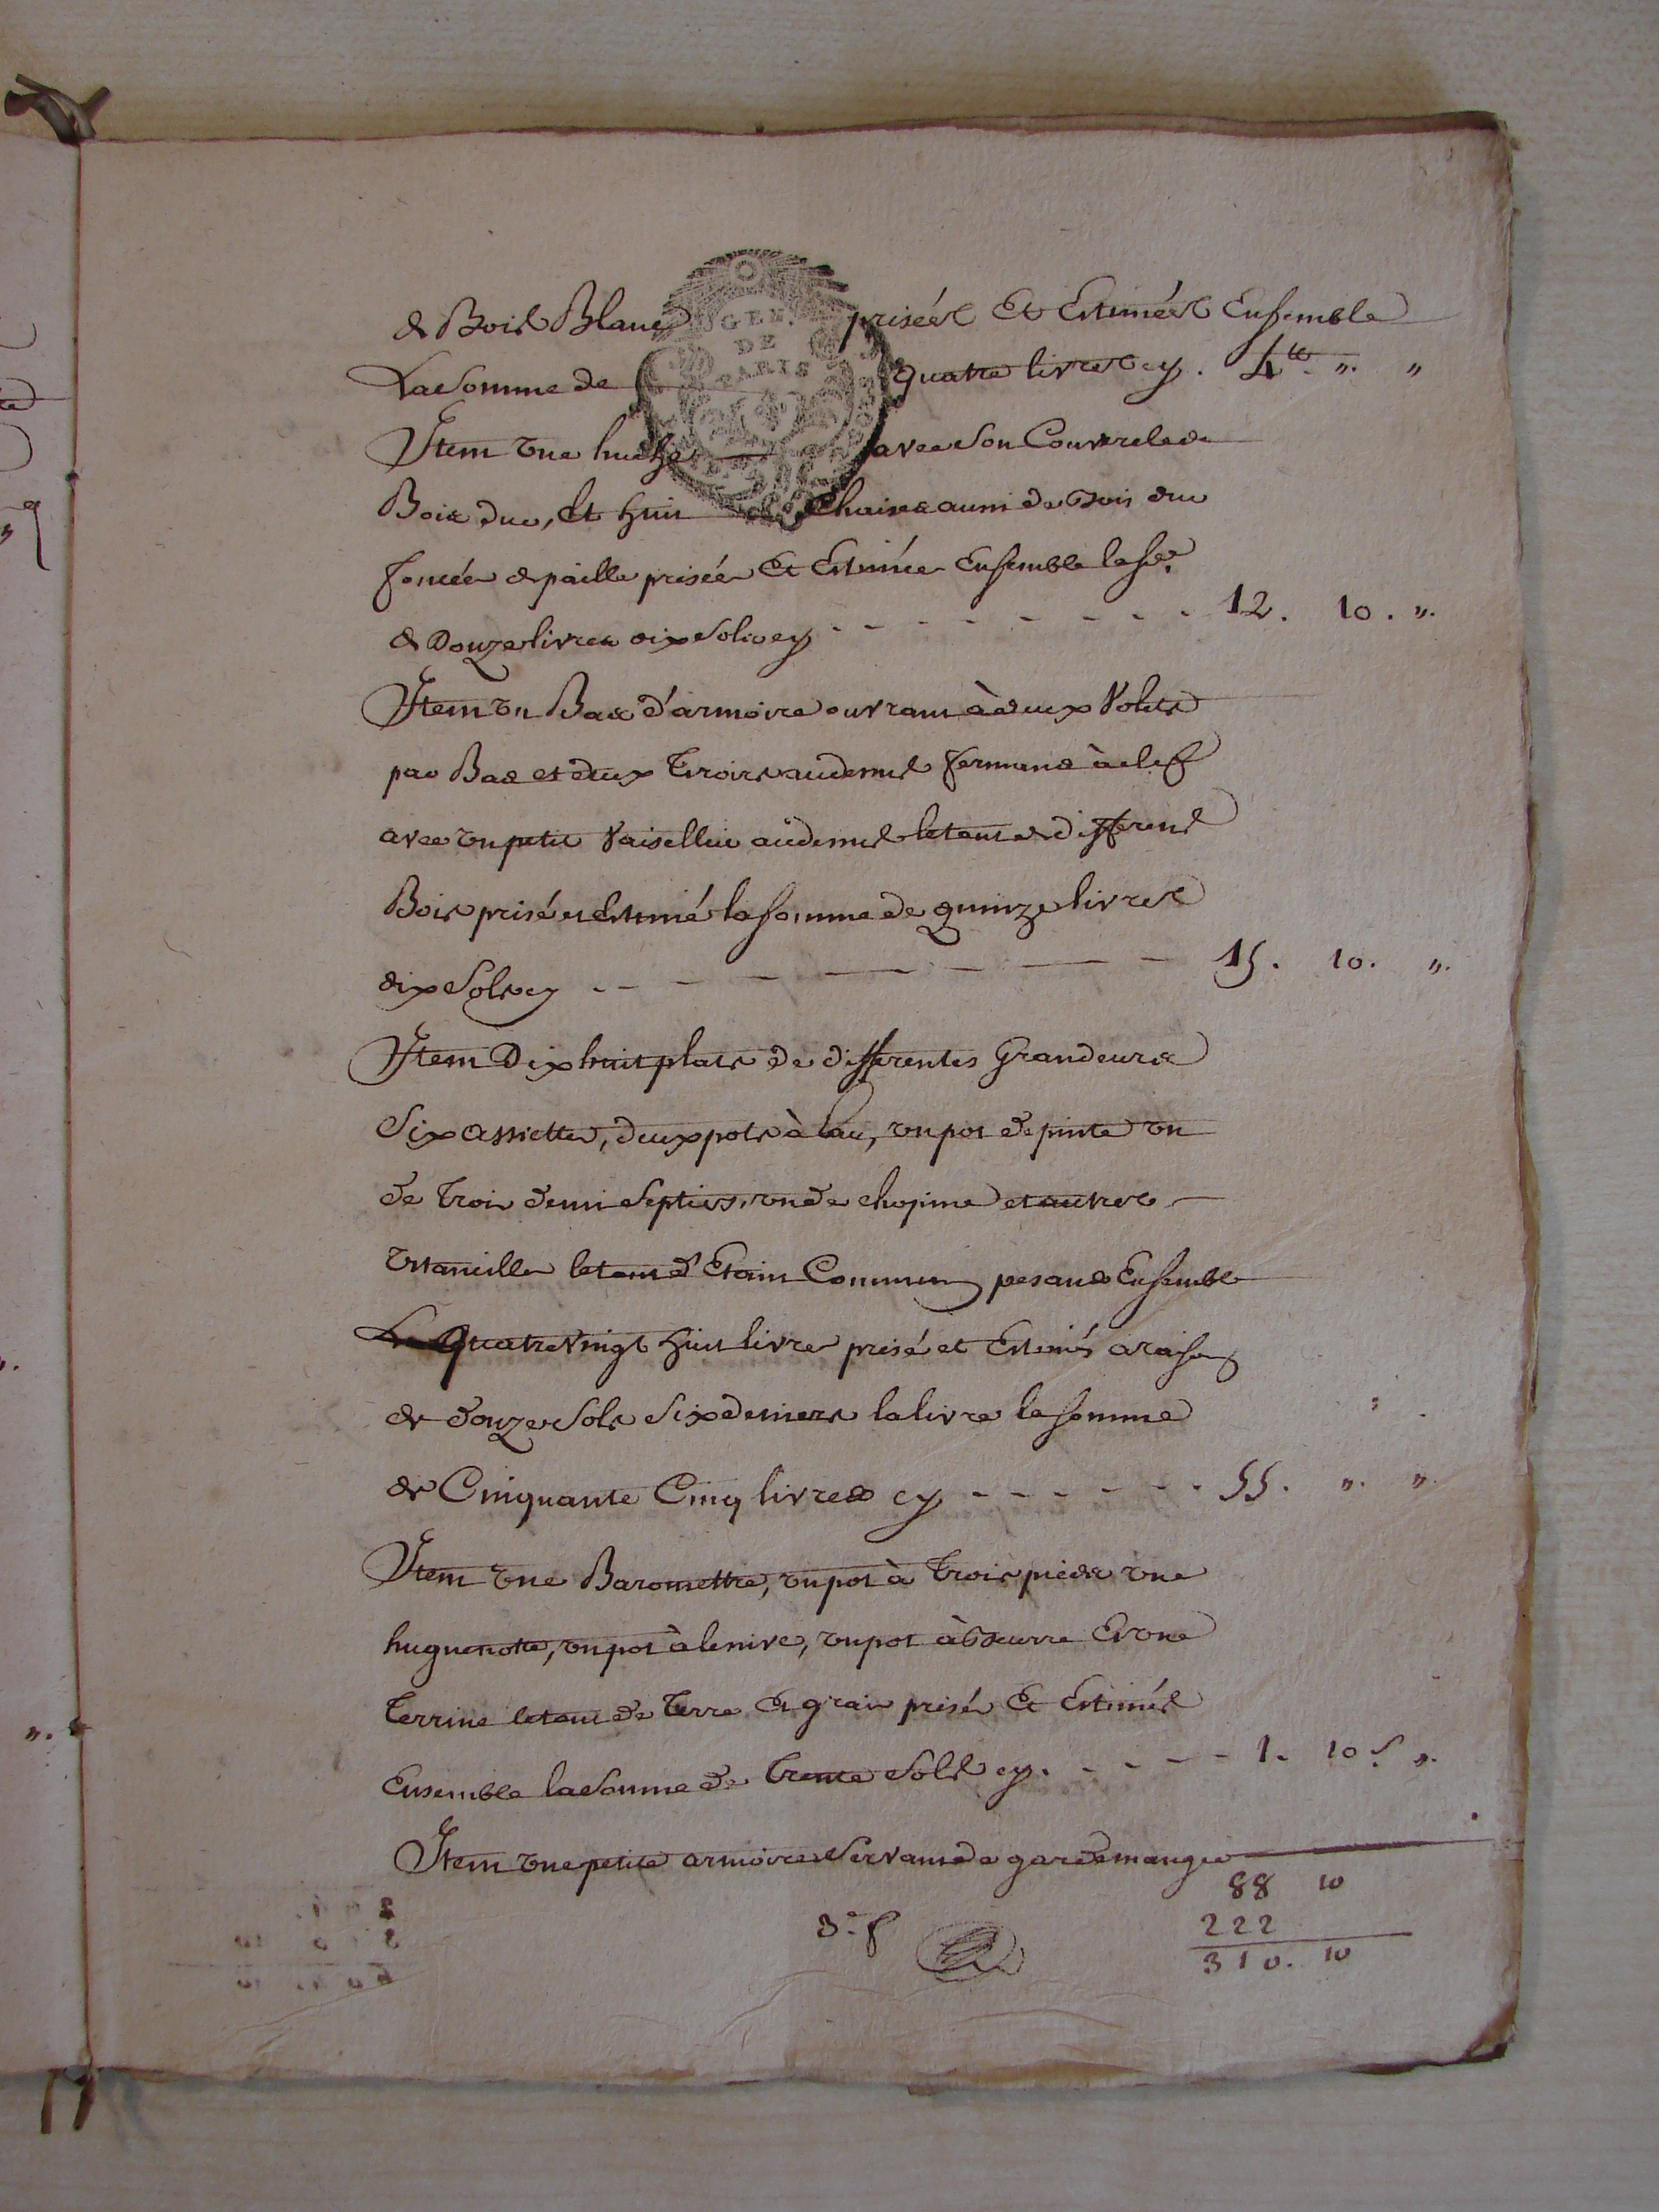 de Bois Blanc prisées Et Estimées Ensemble
GEN.
DE
PARIS
La Somme de quatre livres cy . 4tt. ". "
Item une huche avec Son Couvercle de
Bois dur, Et huit Chaises aussi de Bois dur
foncées de paille prisées Et Estimées Ensemble la se.
de Douze livres dix Sols cy - - - - - - - - 12. 10. ".
Item un Bas d'armoire ouvrant à deux Volets
par Bas et deux Tiroirs audessus fermans à clef
avec un petit Vaisellier audessus le tout de differens
Bois prisé et Estimé la somme de quinze livres
dix Sols cy - - - - - - - - 15. 10. ".
Item Dix huit plats de differentes Grandeurs
Six assiettes, deux pots à leau, un pot de pinte un
de trois demi Septiers, un de chopine et autres
Ustancilles le tout d'Etain Commun pesans Ensemble
quatre Vingt huit livres prisé et Estimés araison
de douze Sols Six deniers la livre la somme
de Cinquante Cinq livres cy - - - - - - 55. ". ".
Item une Baromettre, un pot à trois pieds une
huguenotte, un pot à , un pot à Beurre Et une
terrine le tout de terre Et grais prisés Et Estimés
Ensemble la Somme de trente Sols cy. - - - - 1. 10 s. ".
Item une petite armoire Servant de gardemanger
88 10
222
310. 10
3.e f